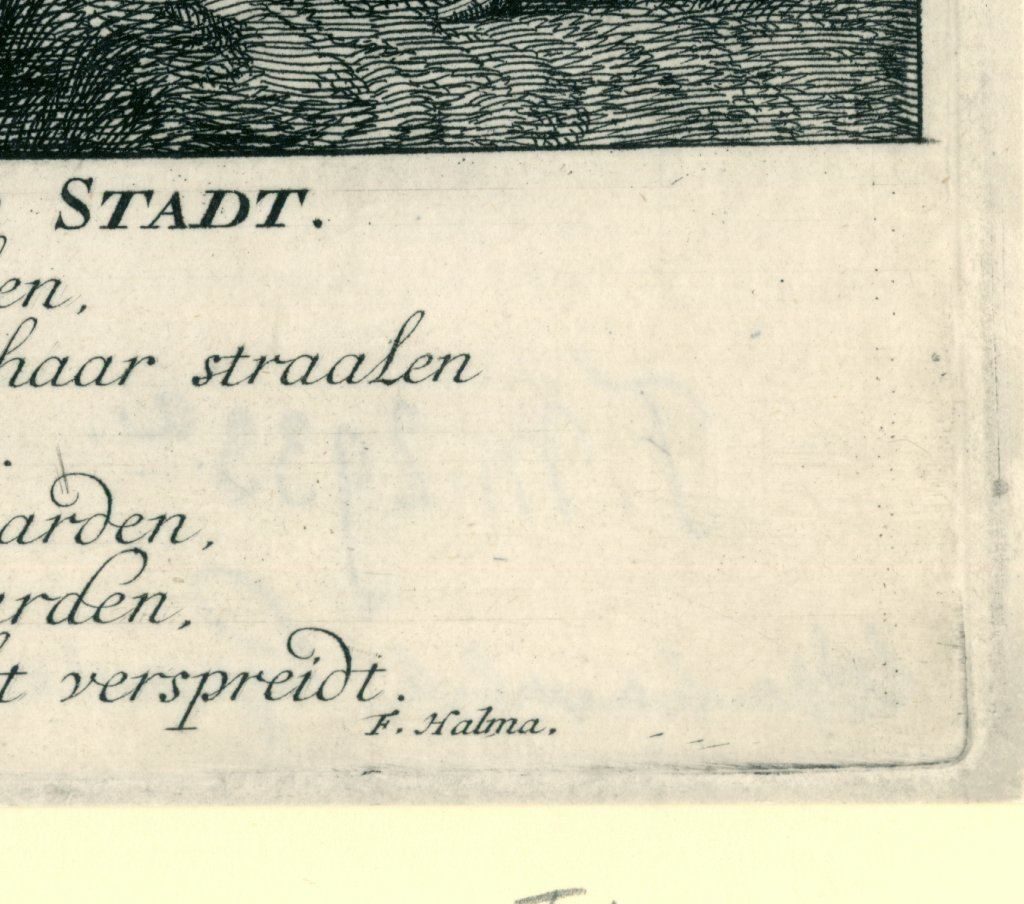 STADT.
en,
haar straalen
.
arden,
rden,
t verspreidt.
F. Halma.